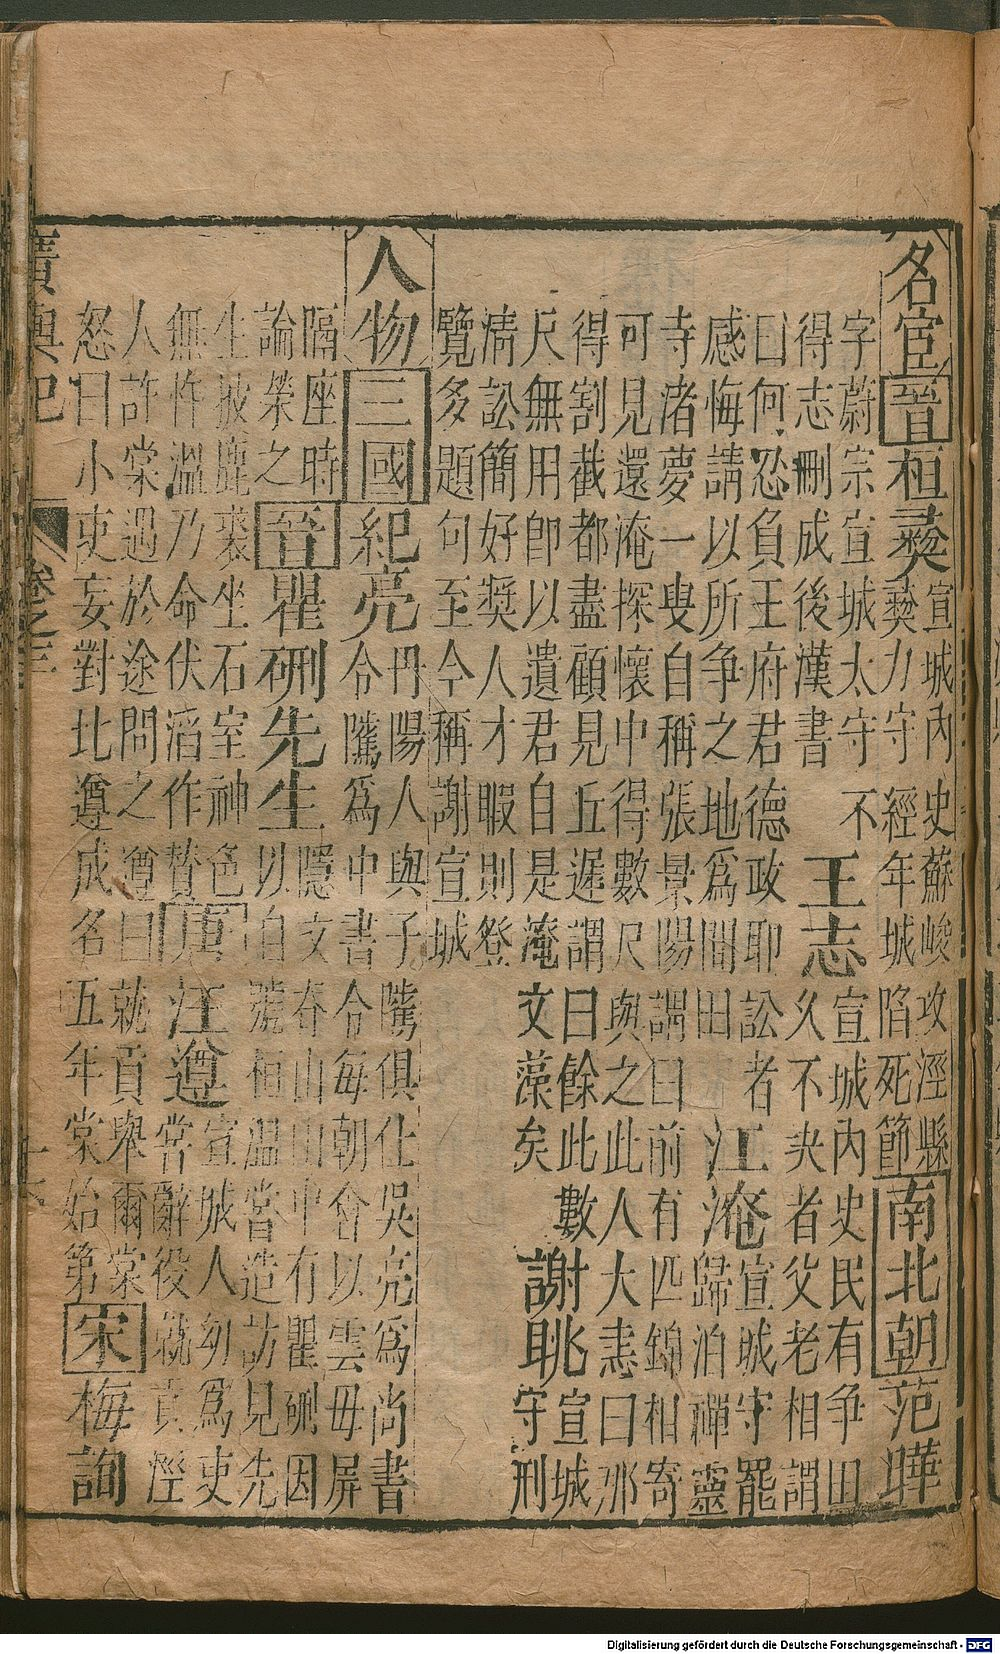 名宦 晉 桓彝 宣城內史蘇峻攻涇縣
彝力守經年城陷死節 南北朝 范曄
字蔚宗宣城太守不
得志刪成後漢書 王志 宣城內史民有爭田
久不夬者父老相謂
曰何忍負王府君德政耶訟者
感悔請以所爭之地爲閒田 江淹 宣城守罷
歸泊禪靈
寺渚夢一叟自稱張景陽謂曰前有匹錦相寄
可見還淹探懷中得數尺與之此人大恚曰那
得割截都盡顧見丘遲謂曰餘此數
尺無用即以遺君自是淹文藻矣 謝眺 宣城
守刑
清訟簡好奬人才暇則登
覽多題句至今稱謝宣城
人物 三國 紀亮 丹陽人與子隲俱仕吳亮爲尚書
令隲爲中書令每朝會以雲毋屏
隔座時
論榮之 晉 瞿硎先生 隱文脊山山中有瞿硎因
以自號桓温當造訪見先
生披鹿裘坐石室神色
無忤溫乃命伏滔作贊 唐 汪遵 宣城人幼爲吏
嘗辭役就貢涇
人許棠遇於途問之遵曰就貢舉爾棠
怒曰小吏妄對北遵成名五年棠始第 宋 梅詢
廣輿記 卷之三
Digitalisierung gefördert durch die Deutsche Forschungsgemeinschaft - DFG